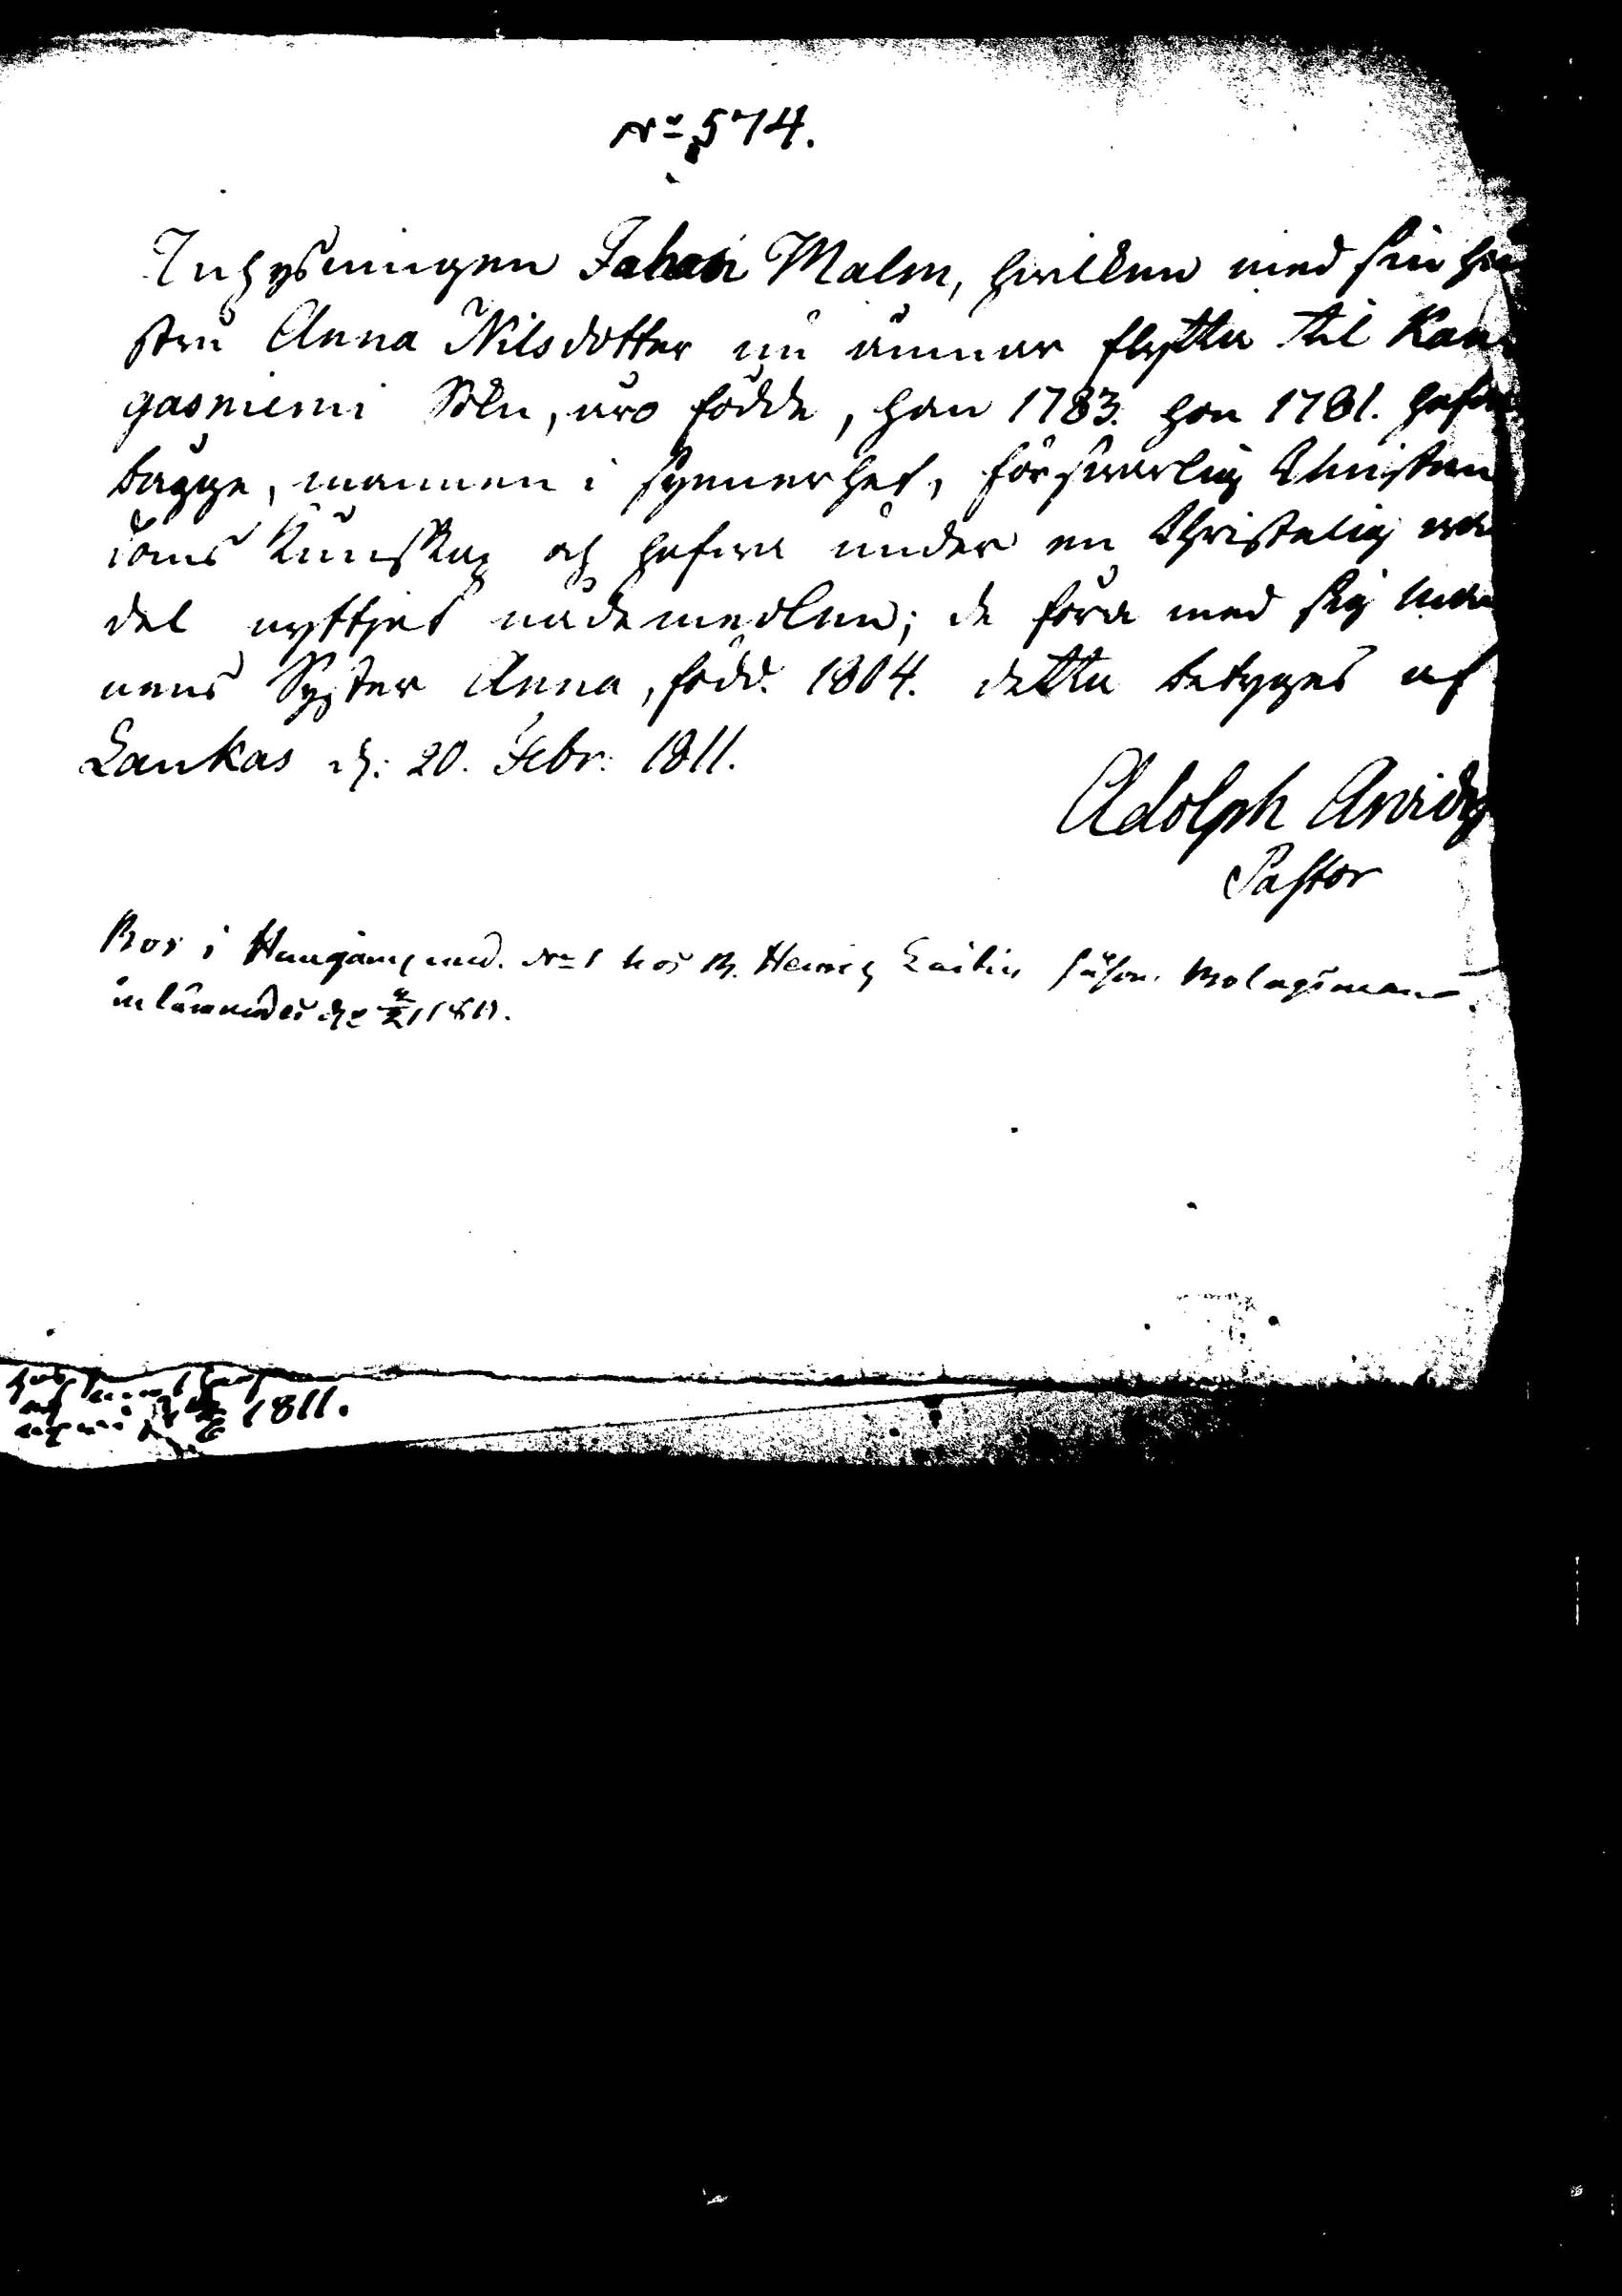 No 574.
Inhysningen Johan Malm, hvilken med sin hu
stru Anna Nilsdotter nu ämnar flytta til Kan
gasniemi Soken, äro födde, han 1783. hon 1781. hafva
bägge, mannen i synnerhet, försvarlig Christen
doms Kunskap och hafva under en Christelig van
del nyttjat nådemedlen; de föra med sig man
nens Syster Anna, född. 1804. detta betyges af
Laukas d: 20. Febr: 1811.
Adolph Arvid
Pastor
Bor i Haugamp und. No 1 hos B. Henric Laitin Bolagsman
inlämnades d
1811.